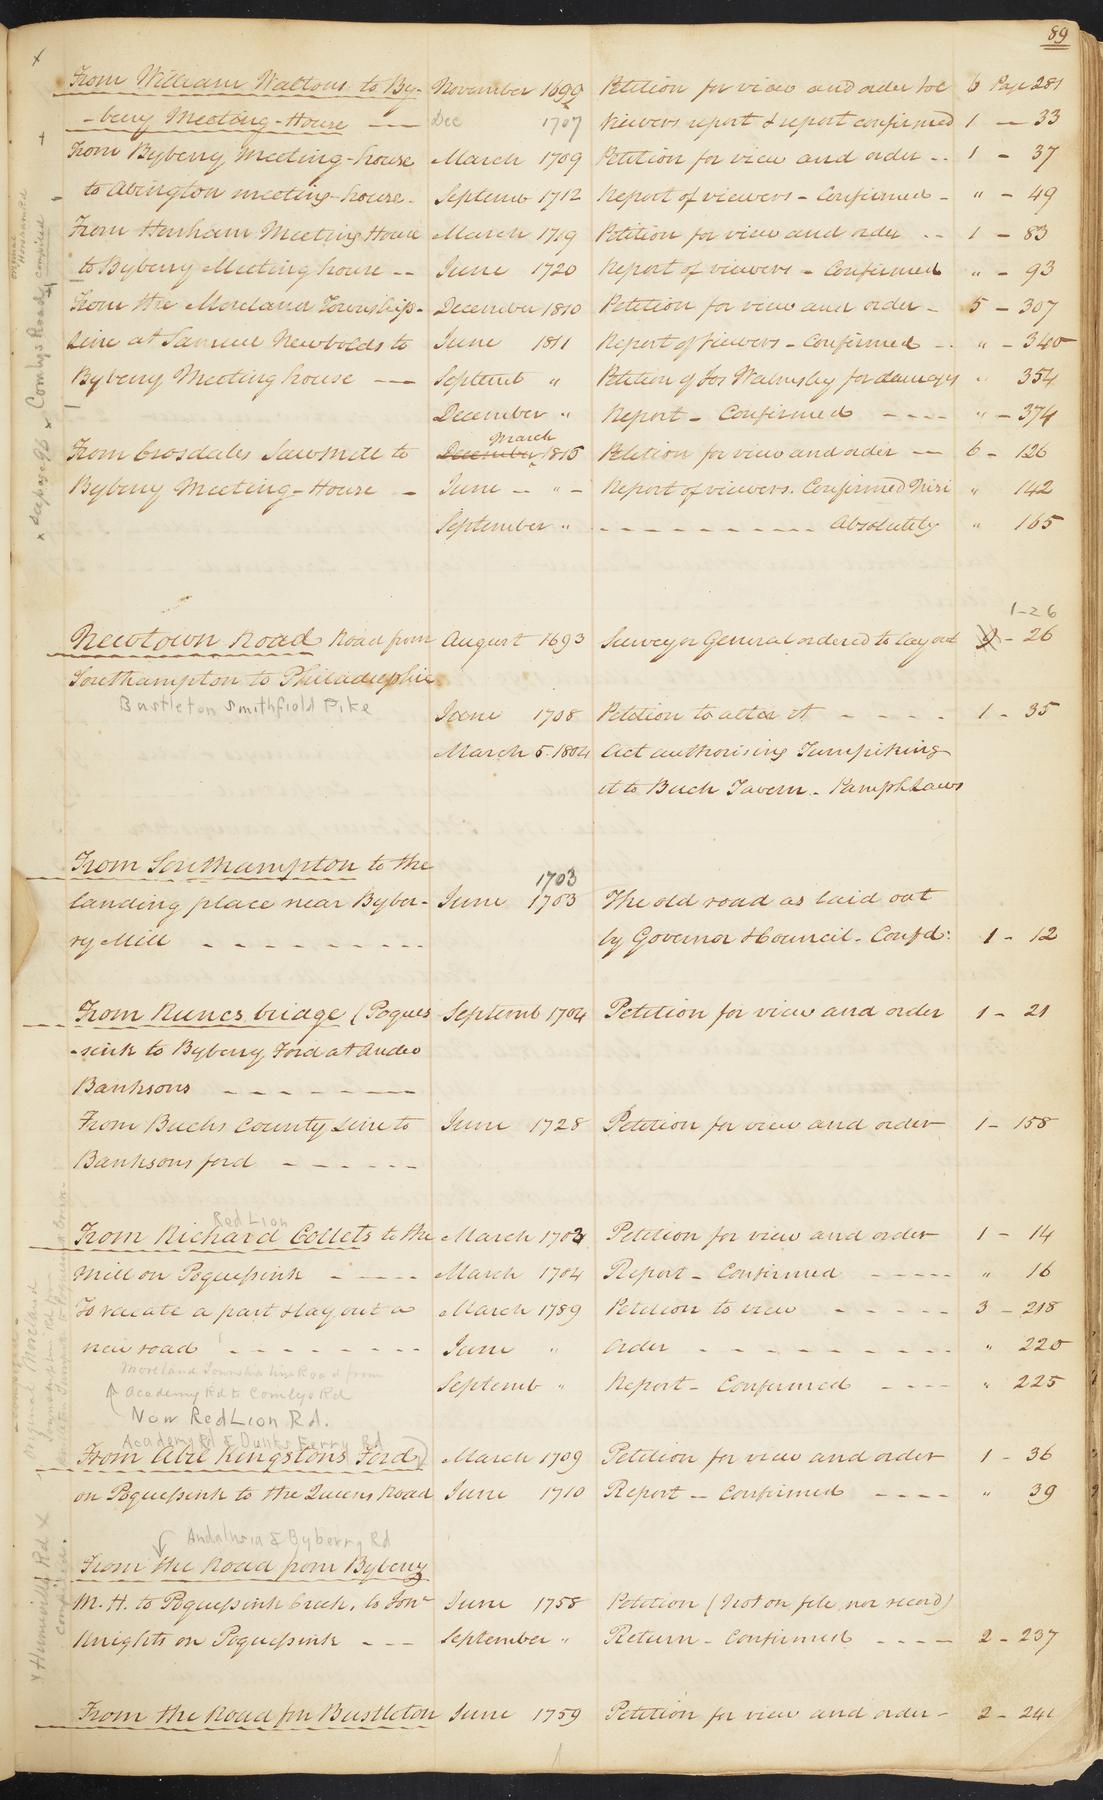 89
From William Waltons to By- November 1699 Petition for view and order &c 6 Page 281
-berry Meeting-House Dec 1707 Viewers report & report confirmed 1 — 33
From Byberry Meeting-house March 1709 Petition for view and order 1 - 37
to Abington meeting-house. Septemb 1712 Report of viewers - Confirmed - " - 49
From Horsham Meeting House March 1719 Petition for view and order 1 - 83
to Byberry Meeting house -- June 1720 Report of viewers - Confirmed " - 93
From the Moreland Township- December 1810 Petition for view and order - 5 - 307
line at Samuel Newbolds to June 1811 Report of viewers - Confirmed " - 340
Byberry Meeting house --- Septemb " Petition of Jos Walmsley for damages " 354
December " Report - Confirmed - - - - " - 374
March
From Crosdales Sawmill to December 1815 Petition for view and order — 6 - 126
Byberry Meeting-House - June -- " - Report of viewers. Confirmed Nisi " 142
September " - - - - - - - - - - Absolutely " 165
1-26
Newtown Road Road from August 1693 Surveyor General ordered to lay out - 26
Southampton to Philadelphia
Bustleton Smithfield Pike
June 1708 Petition to alter it - - - - 1 - 35
March 5. 1804 Act authorising Turnpiking
it to Buck Tavern - Pamph Laws
From Southampton to the
1703
landing place near Byber- June 1703 The old road as laid out
ry Mill - - - - - - - - - by Governor & Council. Confd: 1 - 12
From Runes bridge (Poques Septemb 1704 Petition for view and order 1 - 21
-sink to Byberry Ford at Andw
Banksons - - - - - - -
From Bucks County Line to June 1728 Petition for view and order 1 - 158
Banksons ford - - - - - -
Red Lion
From Richard Collets to the March 1703 Petition for view and order 1 - 14
mill on Poquessink - - - - - March 1704 Report - Confirmed - - - - - " 16
To vacate a part & lay out a March 1789 Petition to view - - - - - - 3 - 218
new road - - - - - - - - June " Order - - - - - - - - - - " 220
Moreland Township line Road from
Academy Rd to Comlys Rd Septemb " Report - Confirmed - - - - " 225
Now Red Lion Rd.
Academy Rd & Dunks Ferry Rd
From Abel Kingstons Ford March 1709 Petition for view and order 1 - 36
on Poquessink to the Queens Road June 1710 Report - Confirmed - - - - " 39
Andalusia & Byberry Rd
From the Road from Byberry
M. H. to Poquessink Creek, to Jonn June 1758 Petition (Not on file, nor record)
Knights on Poquessink - - - September " Return - Confirmed - - - - 2 - 237
From the Road fm Bustleton June 1759 Petition for view and order - 2 - 241
x See page 96 x Comlys Road compiled
x Hornville Rd x
compiled.